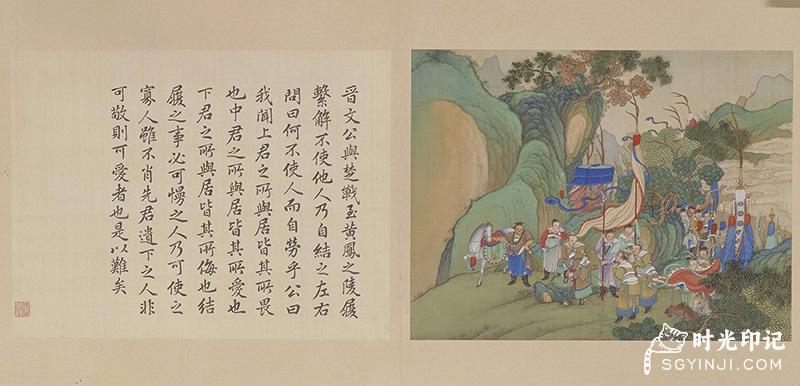 晋文公與楚戰至黄鳳之陵履
繫解不使他人乃自結之左右
問曰何不使人而自勞乎公曰
我聞上君之所與居皆其所畏
也中君之所與居皆其所愛也
下君之所與居皆其所侮也結
履之事必可慢之人乃可使之
寡人雖不肖先君遺下之人非
可敬則可愛者也是以難矣
时光印记
SGYINJI.COM